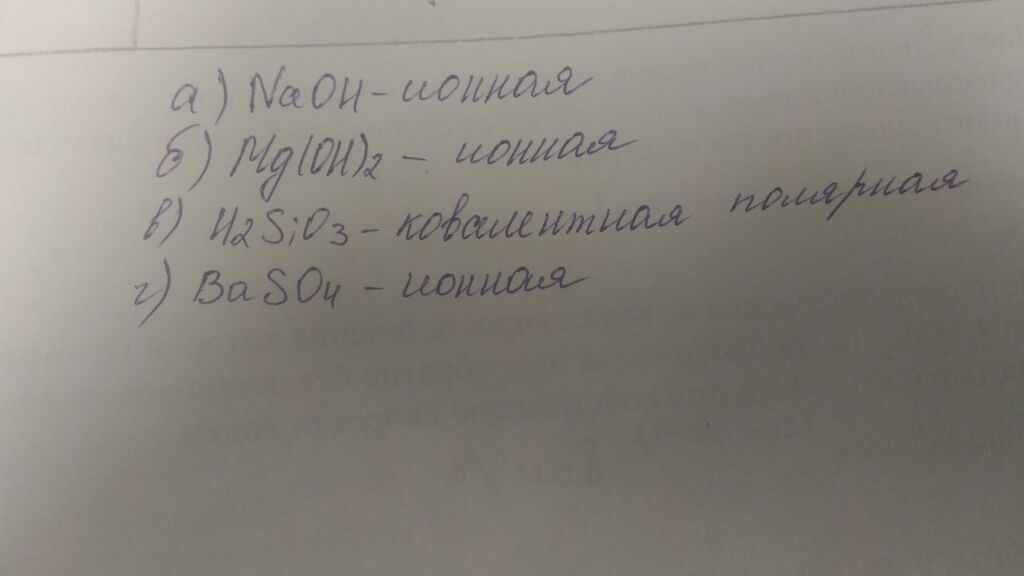 а) NaOH - ионная
б) Mg(OH)2 - ионная
в) H2SiO3 - ковалентная полярная
г) BaSO4 - ионная